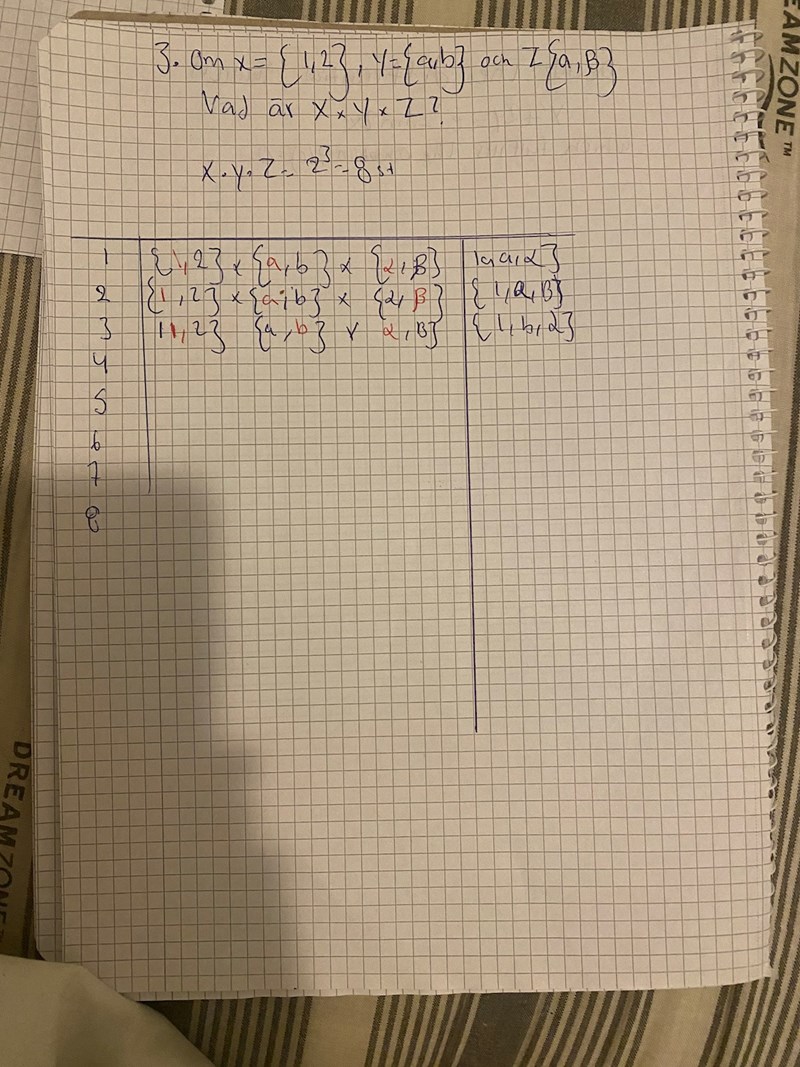 3. Om x = {1,2}, Y={a,b} och Z{α,β}
Vad är X × Y × Z?
x·y·Z = 2³ = 8 st
1 {1,2} × {a,b} × {α,β} 1,a,α}
2 {1,2} × {a,b} × {α,β} {1,a,β}
3 {1,2} {a,b} × α,β} {1,b,α}
4
5
6
7
8
DREAMZONE
EAMZONE™